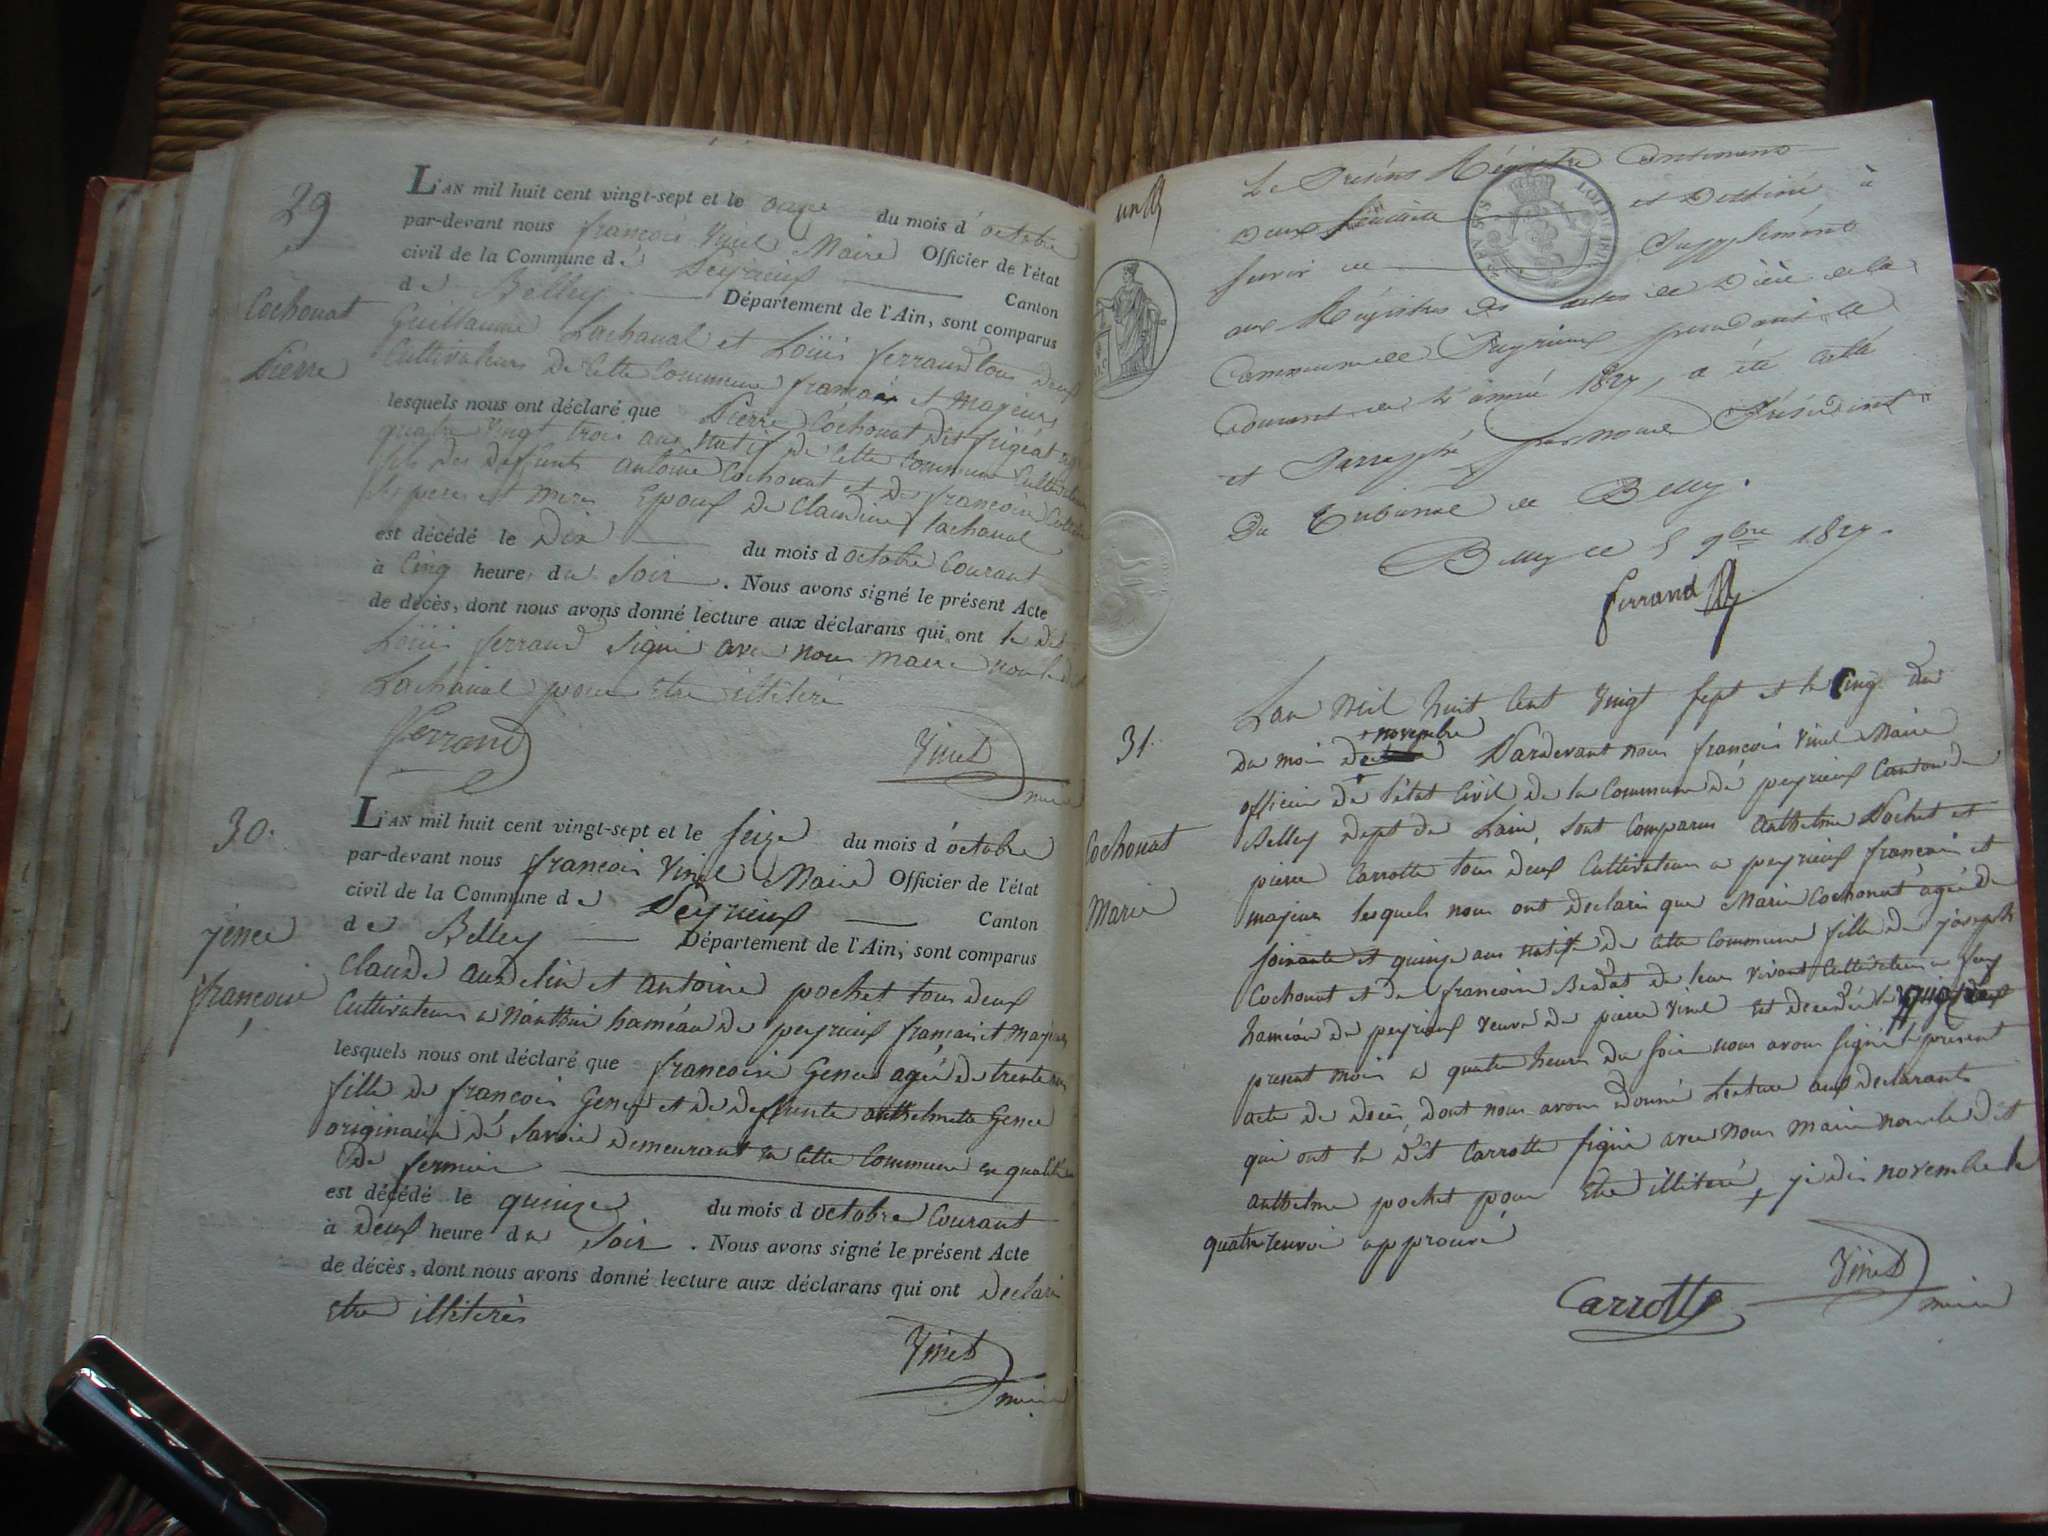 29
L'AN mil huit cent vingt-sept et le onze du mois d'octobre
par-devant nous françois Vinet Maire Officier de l'état
civil de la Commune de Peyrieux Canton
de Belley Département de l'Ain, sont comparus
Cochonat
Pierre
Guillaume Lachanal et Loüis ferrand tous deux
Cultivateurs de Cette Commune francais et majeurs
lesquels nous ont déclaré que Pierre Cochonat dit frigéat
quatre vingt trois ans natif de Cette Commune Cultivateur
fils des deffunts antoine Cochonat et de françoise
ses peres et meres Epoux de Claudine Lachanal
est décédé le Dix du mois d octobre Courant
à Cinq heure du Soir . Nous avons signé le présent Acte
de décès, dont nous avons donné lecture aux déclarans qui ont le dit
Loüis ferrand signé avec nous maire non le dit
Lachanal pour être illiteré
Ferrand
Vinet
maire
30.
L'AN mil huit cent vingt-sept et le seize du mois d'octobre
par-devant nous françois Vinet Maire Officier de l'état
civil de la Commune de Peyrieux Canton
de Belley Département de l'Ain, sont comparus
jence
françoise
Claude et antoine pochet tous deux
Cultivateurs a haméau de peyrieux francais et majeurs
lesquels nous ont déclaré que francoise Gence agée de trente
fille de françois Gence et de deffunte anthelmette Gence
originaire de Savoie demeurant en Cette Commune en qualité
de fermier
est décédé le quinze du mois d octobre Courant
à deux heure du Soir . Nous avons signé le présent Acte
de décès, dont nous avons donné lecture aux déclarans qui ont declaré
Etre illiterés
Vinet
maire
un
Le Présent Régistre Contenant
deux feuillets et Destiné à
servir de Supplément
aux Régistres des actes de Décès de la
Commune de Peyrieux pendant le
Courant de l'année 1827, a été Cotté
et Parraphé par nous Président
Du Tribunal de Belley.
Belley le 5 9bre 1827.
ferrand
31.
Lan Mil huit Cent Vingt Sept et le Cinq du
novembre
Du mois Pardevant nous françois Vinet Maire
officier de l'état Civil de la Commune de peyrieux Canton de
Belley dept de Lain, sont Comparus anthelme Pochet et
Cochonat
Marie
pierre Carrotte tous deux Cultivateurs a peyrieux francais et
majeurs lesquels nous ont declaré que Marie Cochonat agée de
soixante et quinze ans native de Cette Commune fille de joseph
Cochonat et de francoise de leur vivant Cultivateurs a
haméau de peyrieux veuve de pierre Vinet est decedée le
present mois a quatre heures du soir nous avons signé le present
acte de decès dont nous avons donné Lecture aux declarants
qui ont le dit Carrotte signé avec nous maire non le dit
anthelme pochet pour Etre illiteré novembre le
quatre renvoi approuvé
Carrotte
Vinet
maire